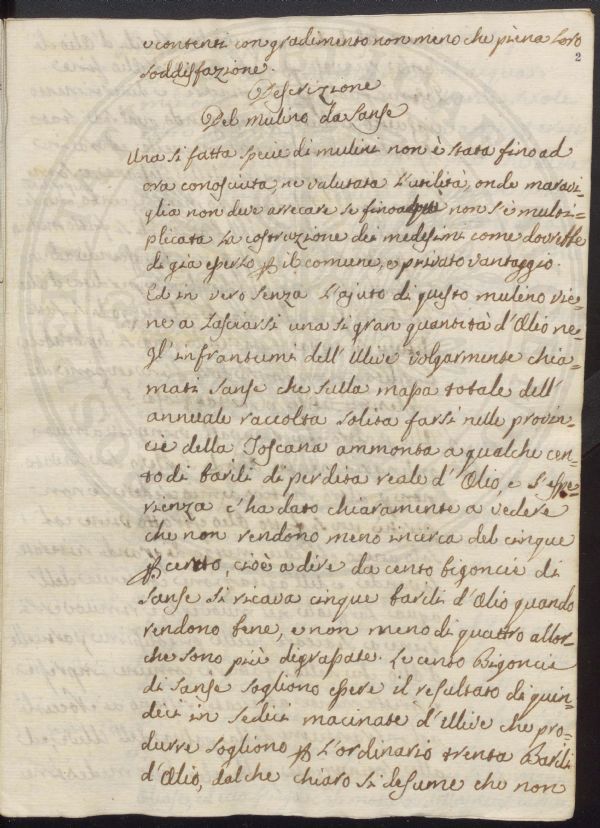 e contenti con gradimento non meno che piena loro
2
soddisfazione.
Descrizione
Del mulino da Sanse
Una si fatta specie di mulini non è stata fino ad
ora conosciuta, ne valutata l'utilità, onde maravi=
glia non deve arrecare se non s'è multi=
plicata la costruzione dei medesimi come dovrette
di già esserlo p il comune, e privato vantaggio.
Ed in vero senza l'ajuto di questo mulino vie=
ne a lasciarsi una si gran quantità d'Olio ne=
gl'infrantumi dell'Ulive volgarmente chia=
mati sanse che sulla massa totale dell'
annuale raccolta solita farsi nelle provin=
cie della Toscana ammonta a qualche cen=
to di barili di perdita reale d'Olio, e l'espe=
rienza c'ha dato chiaramente a vedere
che non rendono meno incirca del cinque
p cento, cioè a dire da cento bigoncie di
sanse si ricava cinque barili d'Olio quando
rendono bene, e non meno di quattro allor=
che sono più digrassate. Le cento Bigoncie
di sanse sogliono essere il resultato di quin=
dici in sedici macinate d'Ulive che pro=
durre sogliono p l'ordinario trenta Barili
d'Olio, dal che chiaro si desume che non